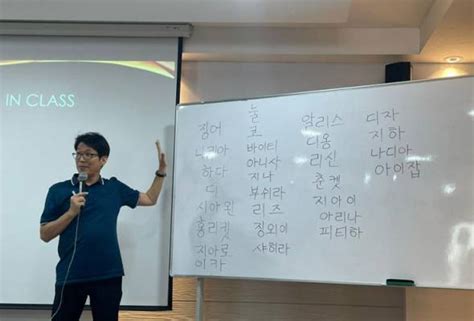 IN CLASS
징어
니피아
하다
디
시아원
홍리켓
지아로
이카
늘
코
바이티
아니사
지나
부쉬라
리즈
징외이
샤히라
알리스
디움
리신
춘켓
지아이
아리나
피티하
디자
지하
나디아
아이잡